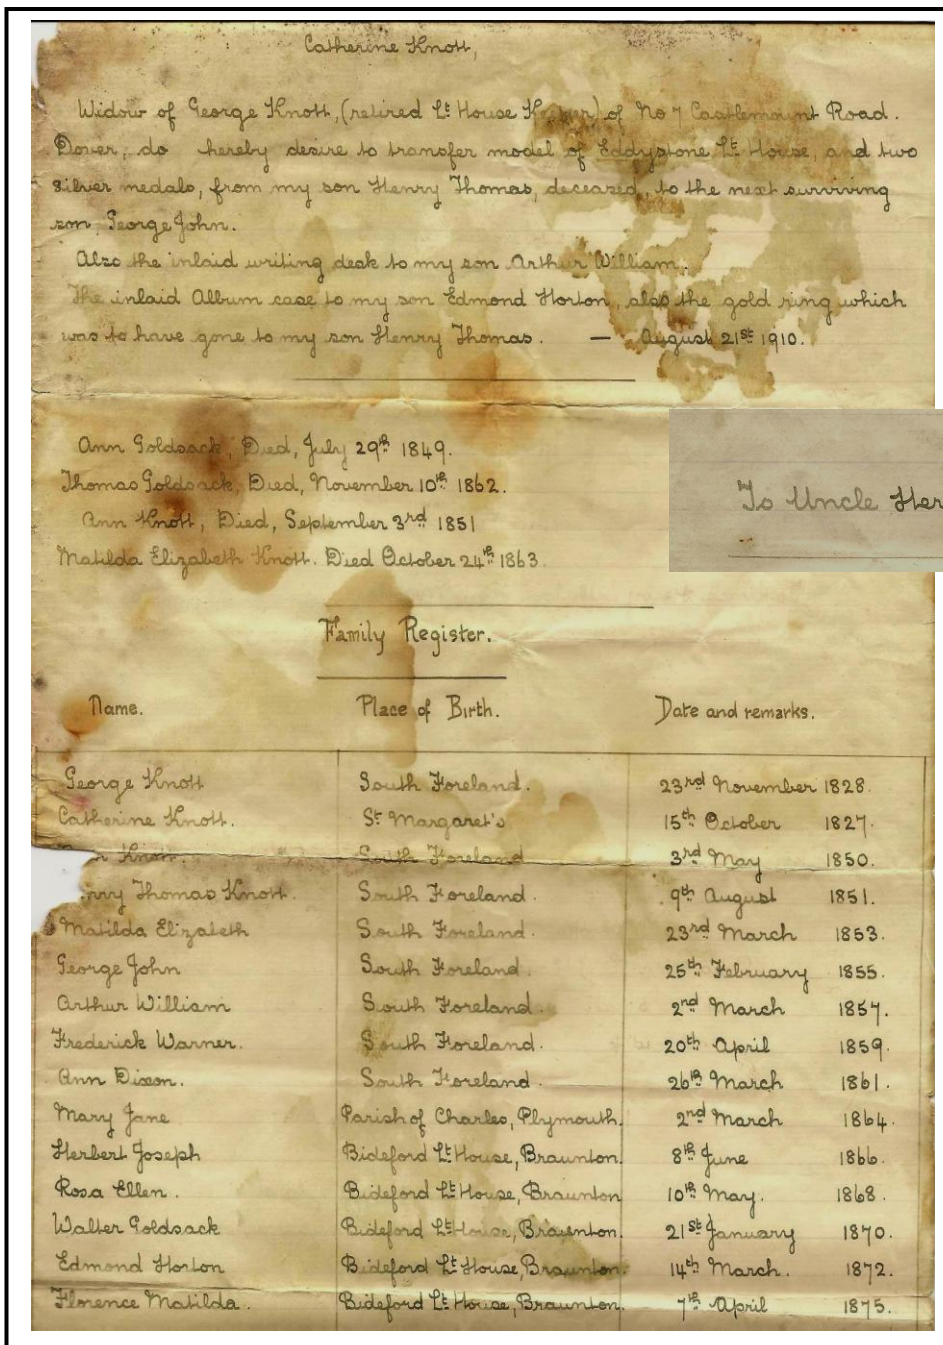 Catherine Knott,
Widow of George Knott, (retired Lt House Keeper) of No 7 Castlemount Road.
Dover, do hereby desire to transfer model of Eddystone Lt House, and two
silver medals, from my son Henry Thomas, deceased, to the next surviving
son, George John.
Also the inlaid writing desk to my son Arthur William.
The inlaid Album case to my son Edmond Horton, also the gold ring which
was to have gone to my son Henry Thomas. — August 21st 1910.
Ann Goldsack, Died, July 29th 1849.
Thomas Goldsack, Died, November 10th 1862.
Ann Knott, Died, September 3rd 1851
Matilda Elizabeth Knott. Died October 24th 1863.
To Uncle Her
Family Register.
Name. Place of Birth. Date and remarks.
George Knott South Foreland. 23rd November 1828.
Catherine Knott. St Margaret's 15th October 1827.
Knott. South Foreland 3rd May 1850.
nry Thomas Knott. South Foreland. 9th August 1851.
Matilda Elizabeth South Foreland. 23rd March 1853.
George John South Foreland. 25th February 1855.
Arthur William South Foreland. 2nd March 1857.
Frederick Warner. South Foreland. 20th April 1859.
Ann Dixon. South Foreland. 26th March 1861.
Mary Jane Parish of Charles, Plymouth. 2nd March 1864.
Herbert Joseph Bideford Lt House, Braunton. 8th June 1866.
Rosa Ellen. Bideford Lt House, Braunton 10th May. 1868.
Walter Goldsack Bideford Lt House, Braunton. 21st January 1870.
Edmond Horton Bideford Lt House, Braunton. 14th March. 1872.
Florence Matilda. Bideford Lt House, Braunton. 7th April 1875.